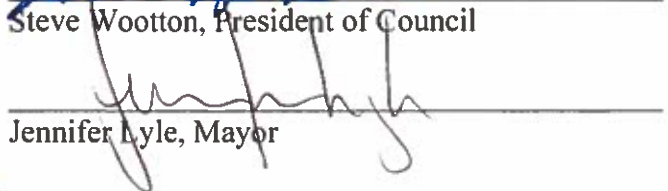 Steve Wootton, President of Council
Jennifer Lyle, Mayor